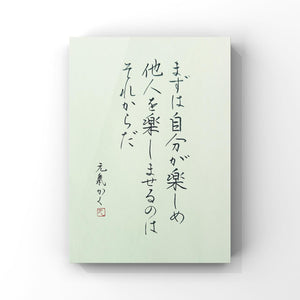 まずは自分が楽しめ
他人を楽しませるのは
それからだ
元氣かく